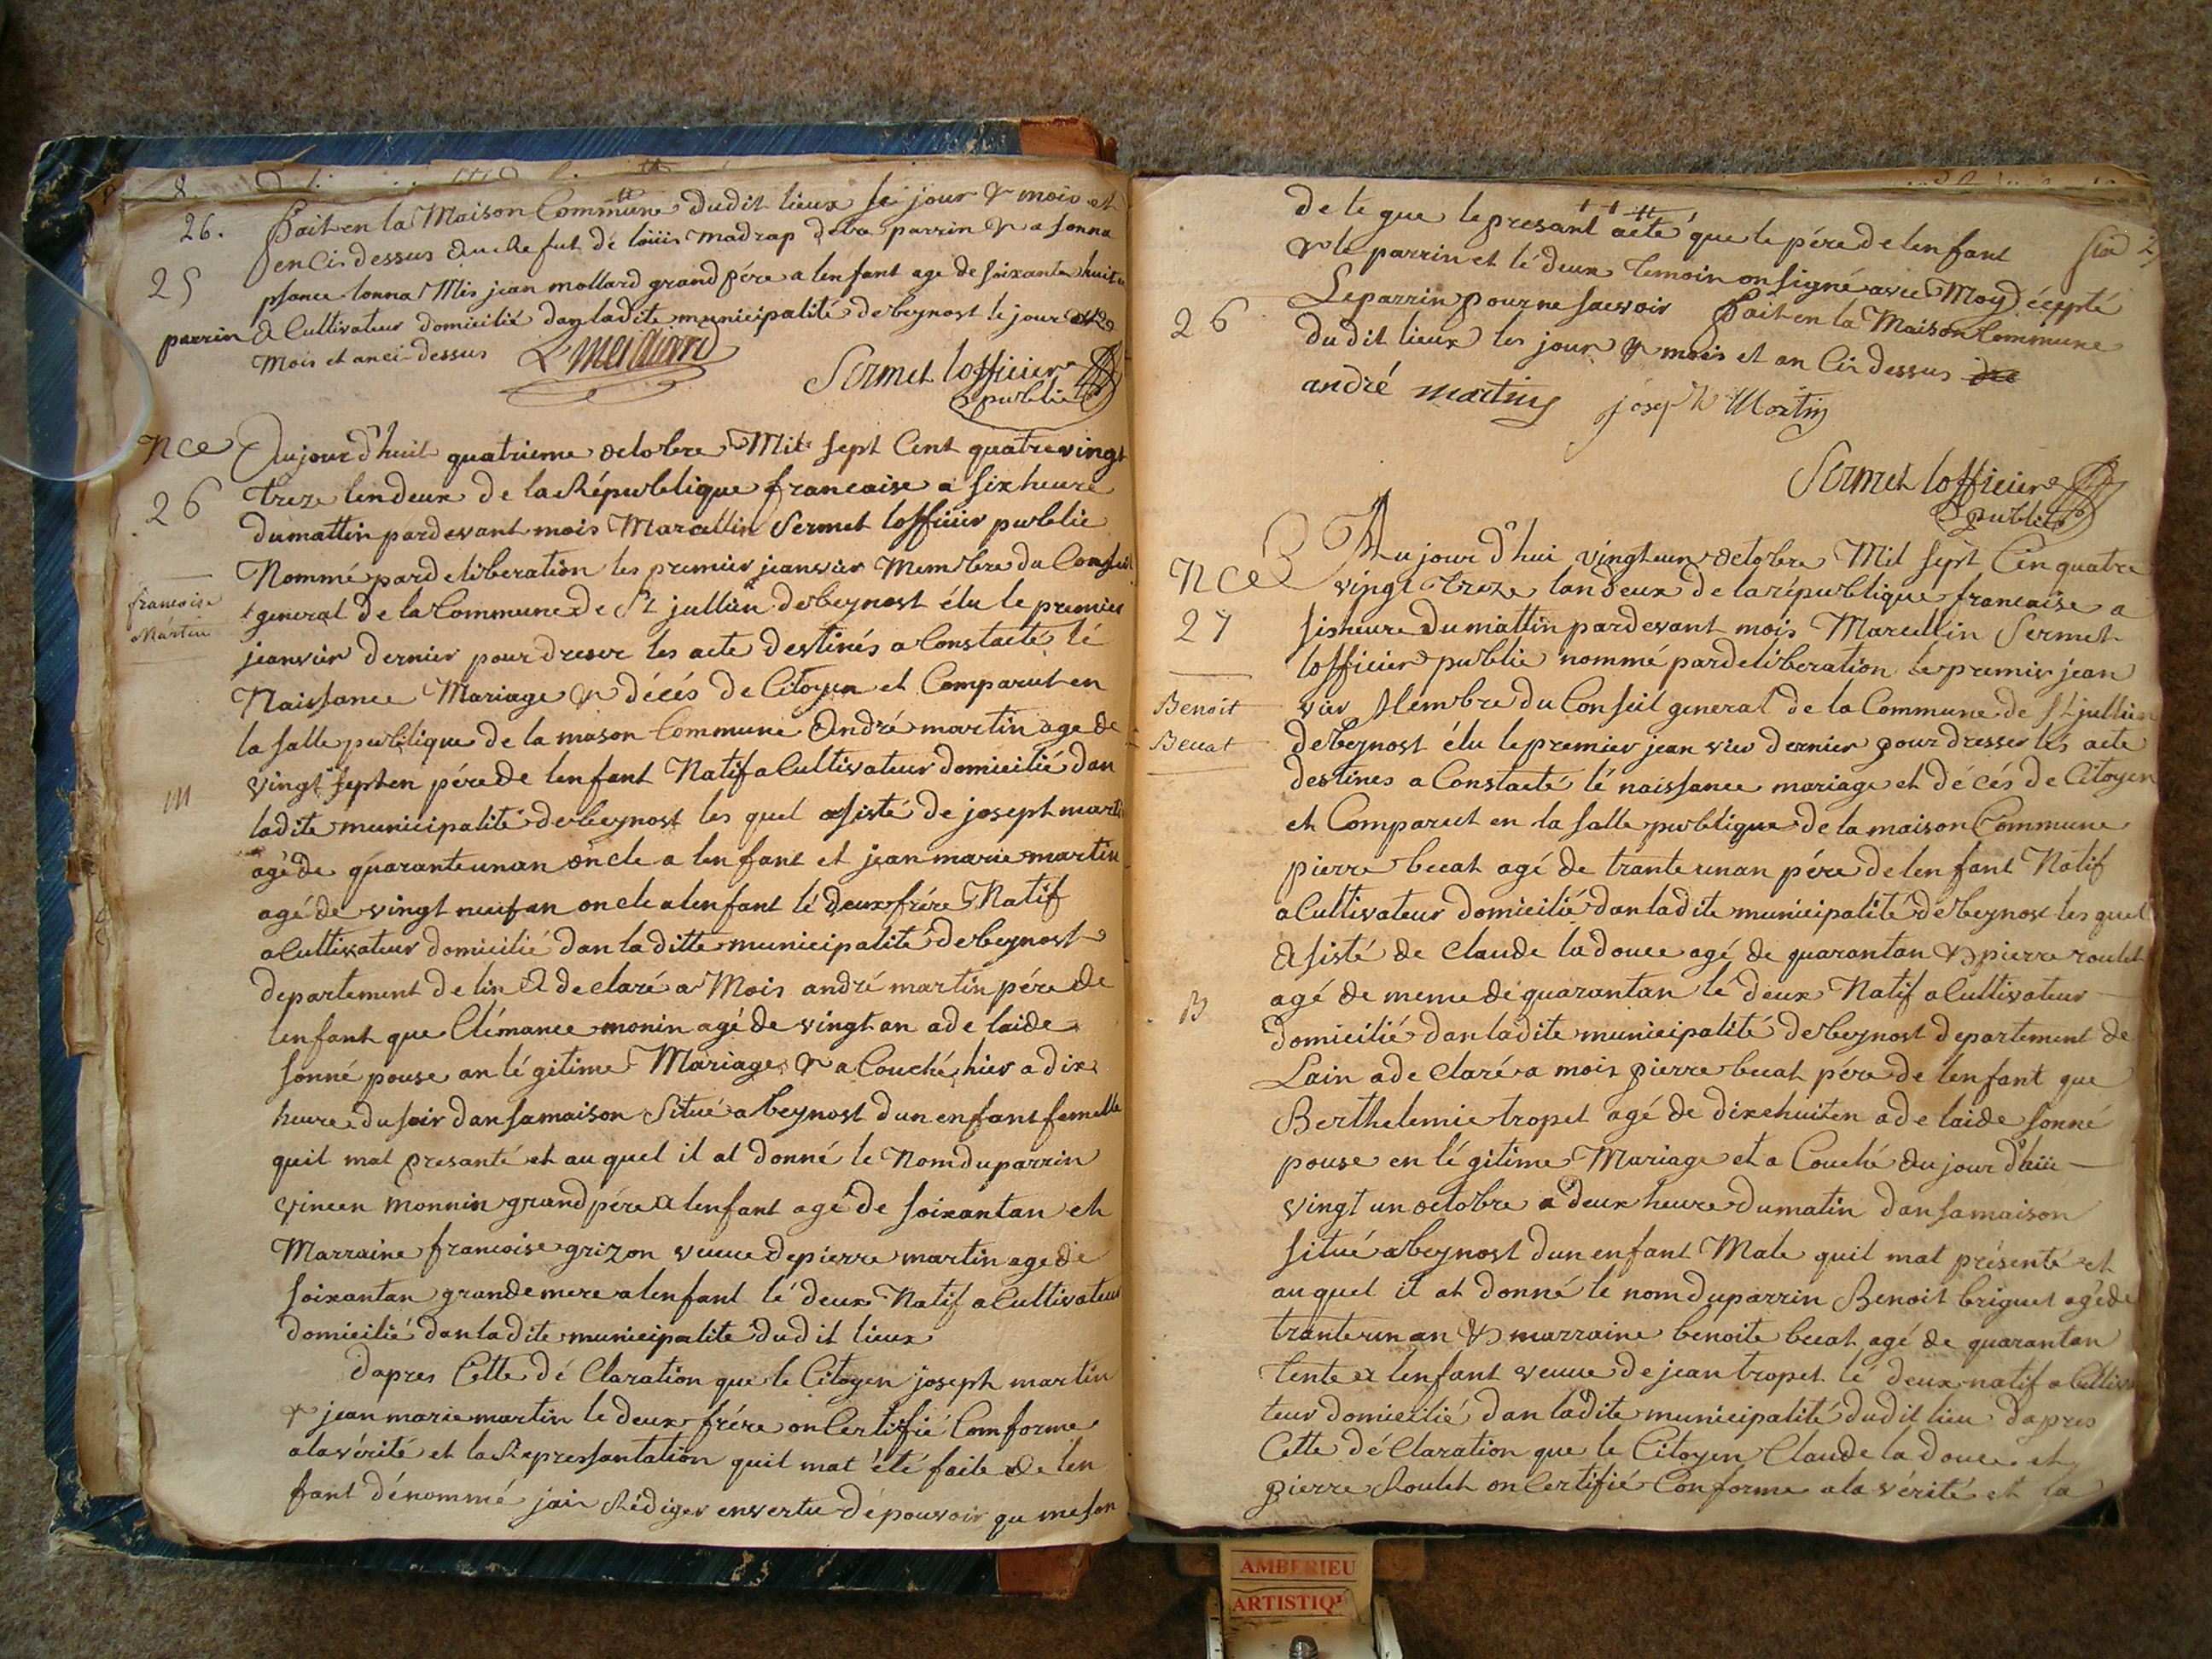 26. fait en la Maison Commune dudit lieux se jour & mois et
en Ci dessus au Refut dé loüis madrap parrin & a sonna
25
psance lonna Mis jean mollard grand pére a lenfant age de soixante huit
parrin a Cultivateur domicilié dan ladite municipalité de beynost le jour
Mois et an ci dessus
Sermet lofficier
public
Nce Aujourd'huit quatrieme octobre Mil sept Cent quatre vingt
26 treze lendeux de la République francaise a six heure
du mattin pardevant mois Marcellin Sermet lofficier public
Nommé par deliberation les premier jeanvier Membre du Conseil
francoise
Martin
general de la Commune de St jullien de beynost élu le premier
jeanvier dernier pour dreser les acte destinés a Constacté lé
Naissance Mariage & décés de Citoyen et Comparut en
la salle publique de la mason Commune André martin age de
vingt septen pére de lenfant Natif a Cultivateur domicilié dan
m
ladite municipalité de beynost les quel asisté de joseph martin
agé de quarante unan oncle a lenfant et jean marie martin
agé de vingt neufan oncle a lenfant lé deux frére Natif
a Cultivateur domicilié dan laditte municipalité de beynost
departement de lin a declaré a Mois andré martin pére de
lenfant que Clémance monin agé de vingt an ade laide
sonné pouse an légitime Mariage & a Couché hier a dix
heure du soir dan samaison Situé a beynost dun enfant femelle
quil mat presanté et au quel il at donné le Nom du parrin
vincen monnin grand pére a lenfant agé de soixantan et
Marraine francoise grizon veuve de pierre martin age de
soixantan grande mere a lenfant lé deux Natif a Cultivateur
domicilié dan ladite municipalité dudit lieux
dapres Cette déClaration que le Citoyen joseph martin
& jean marie martin le deux frére on Certifié Comforme
a la vérité et la Represantation quil mat été faite de len
fant dénommé jai Rédiger en vertu dé pouvoir qu me son
de le gue le presant acte que le pére de lenfant
& le parrin et lé deux temoin on signé avec Moy décepté
Le parrin pour ne saevoir fait en la Maison Commune
26
dudit lieux les jour & mois et an Ci dessus
andré martin joseph Martin
Sermet lofficier
public
Nce Aujourd'hui vingt eun octobre Mil sept Cen quatre
vingt treze lan deux de la république francaise a
27 sis heure du mattin pardevant mois Marcellin Sermet
lofficier public nommé par deliberation le premier jean
Benoit
vier Membre du Conseil general de la Commune de St jullien
Becat
de beynost élu le premier jean vier dernier pour dresser les acte
destines a Constacté lé naissance mariage et décés de Citoyen
et Comparut en la salle publique de la maison Commune
pierre becat agé de trante unan pére de lenfant Natif
a Cultivateur domicilié dan ladite municipalité de beynost les quel
asisté de Claude la douce agé de quarantan & pierre roulet
agé de meme de quarantan lé deux Natif a Cultivateur
B
domicilié dan ladite municipalité de beynost departement de
Lain a de Claré a mois pierre becat pére de lenfant que
Berthelemie tropet agé de dixehuiten ade laide sonné
pouse en légitime Mariage et a Couché aujour d'hüi
vingt un octobre a deux heure du matin dan samaison
situé a beynost dun enfant Male quil mat présenté et
au quel il at donné le nom du parrin Benoit briguet agé de
trante un an & marraine benoite becat agé de quarantan
tente a lenfant veuve de jean tropet lé deux natif a Cultiva
teur domicilié dan ladite municipalité dudit lieu dapres
Cette déClaration que le Citoyen Claude la douce et
pierre Roulet on Certifié Conforme a la vérité et la
AMBERIEU
ARTISTIQ